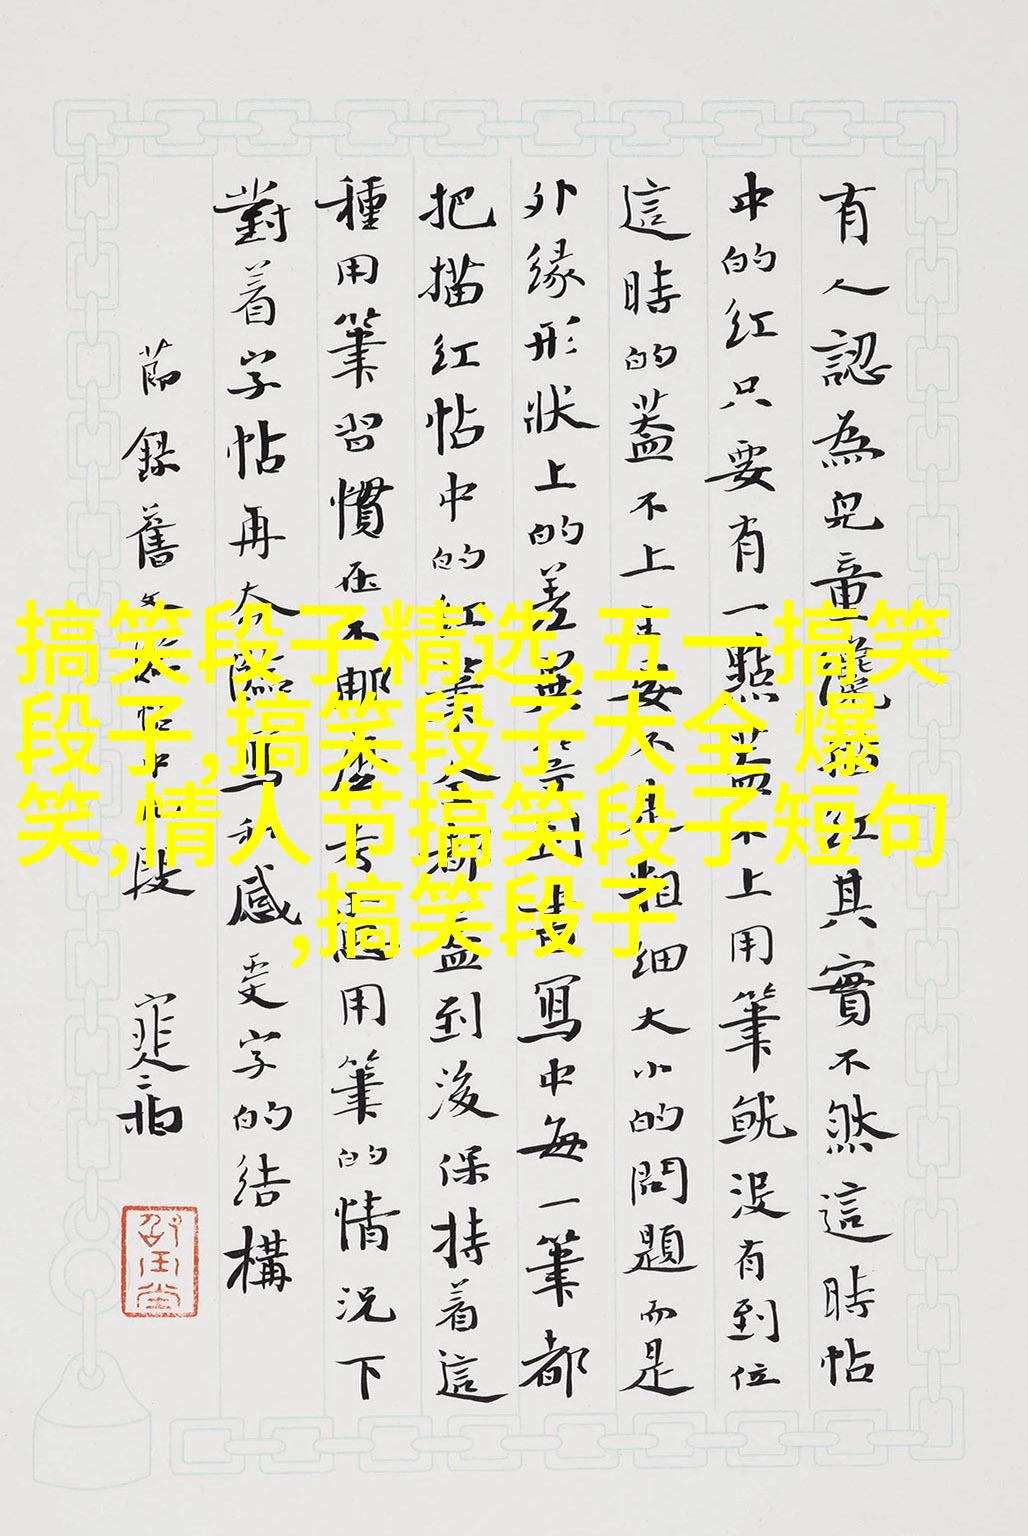 有人認為兒童描紅其實不然這時帖
中的红只要有一點蓋不上用筆就没有到位
這時的蓋不上主要不是粗细大小的問題而是
外緣形狀上的差異等到書寫中每一筆都
把描红帖中的红筆全部盖到後保持着這
種用筆習慣在不那麼考慮用筆的情況下
對着字帖再去临写和感受字的结構
節錄舊文
段
搞笑段子精选,五一搞笑
段子,搞笑段子大全 爆
笑,情人节搞笑段子短句
,搞笑段子